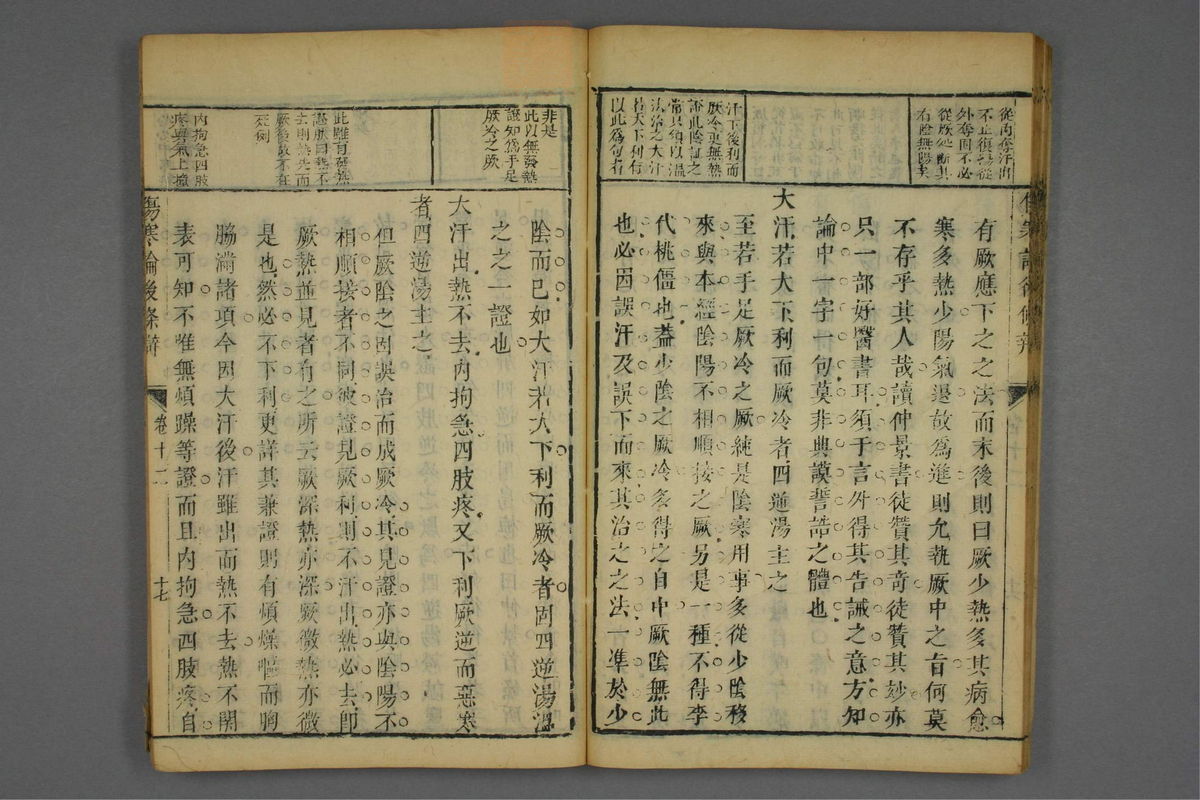 從內奪汗出
不止復
外奪固不必
從厥逆斷其
有陰無陽矣
汗下後利而
厥冷更無熱
證此陰証之
常只須以溫
法治之大汗
若大下利有
以此爲句者
有厥應下之之法而末後則曰厥少熱多其病愈
寒多熱少陽氣退故爲進則允執厥中之旨何莫
不存乎其人哉讀仲景書徒贊其奇徒贊其妙亦
只一部好醫書耳須于言外得其告誡之意方知
論中一字一句莫非典謨誓誥之體也
大汗若大下利而厥冷者四逆湯主之
至若手足厥冷之厥純是陰寒用事多從少陰移
來與本經陰陽不相順接之厥另是一種不得李
代桃僵也蓋少陰之厥冷多得之自中厥陰無此
也必因誤汗及誤下而來其治之之法一準於少
非是
此以無發熱
證知爲手足
厥冷之厥
此雖有發熱
證然曰熱不
去則熱先而
厥後故不在
死例
內拘急四肢
疼與氣上撞
陰而已如大汗若大下利而厥冷者固四逆湯溫
之之一證也
大汗出熱不去內拘急四肢疼又下利厥逆而惡寒
者四逆湯主之
但厥陰之因誤治而成厥冷其見證亦與陰陽不
相順接者不同彼證見厥利則不汗出熱必去即
厥熱並見者有之所云厥深熱亦深厥微熱亦微
是也然必不下利更詳其兼證則有煩燥嘔而胸
脇滿諸項今因大汗後汗雖出而熱不去熱不關
表可知不唯無煩躁等證而且內拘急四肢疼自
傷寒論後條辯
卷十二
十七